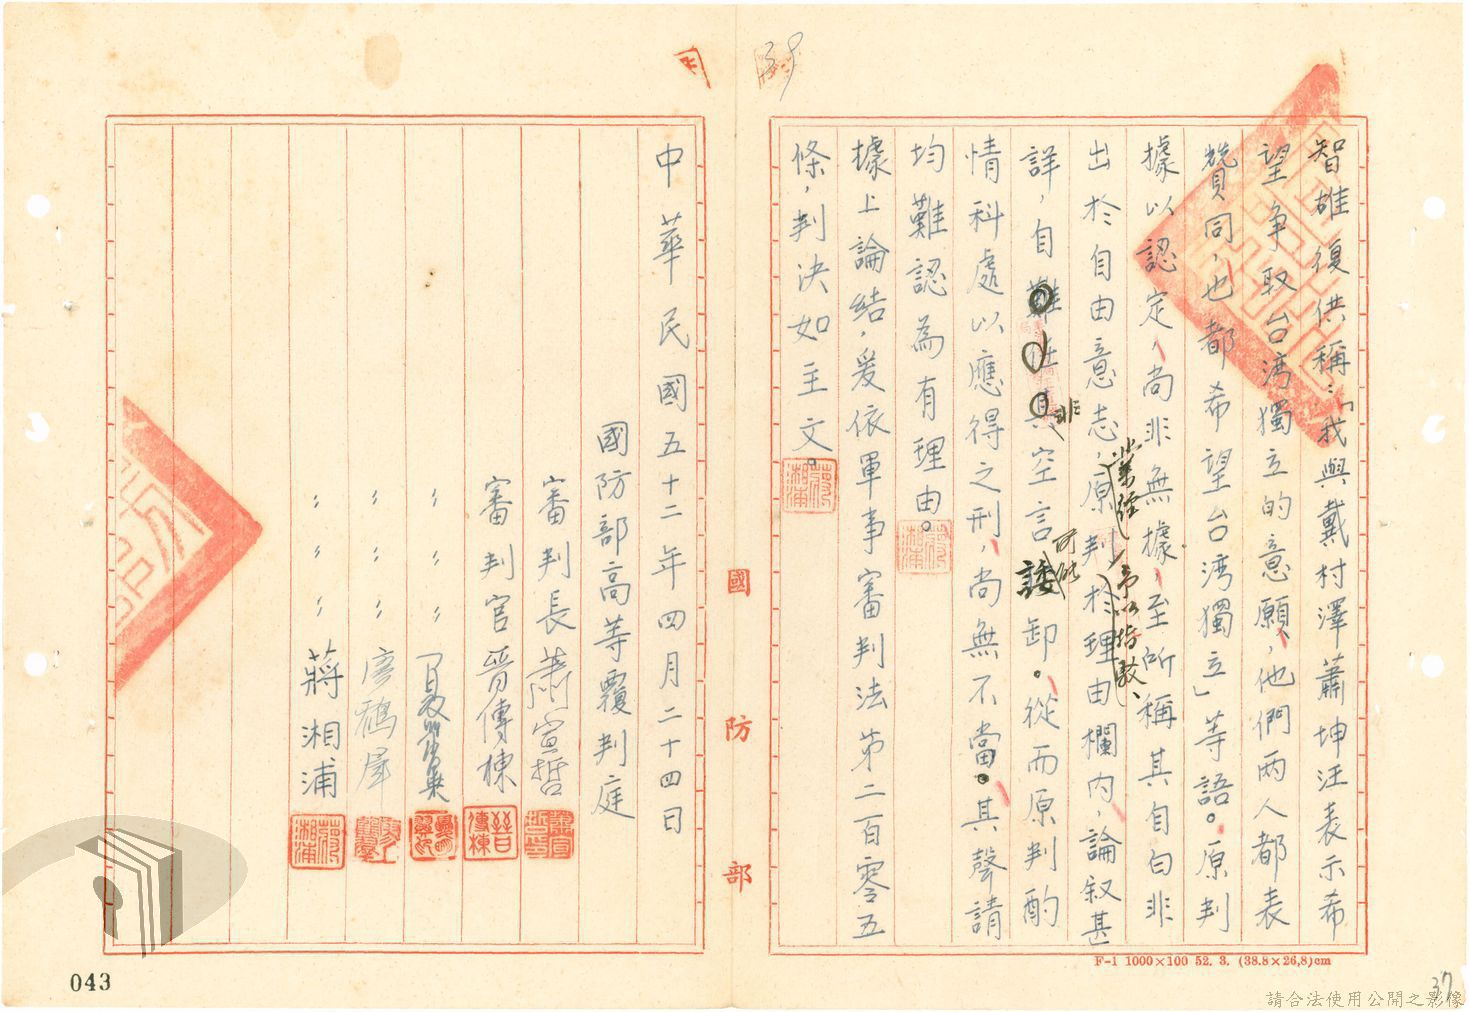 智雄復供稱：「我與戴村澤蕭坤汪表示希
望争取台湾獨立的意願，他們兩人都表
贊同，也都希望台湾獨立」等語。原判
據以認定，尚非無據，至所稱其自白非
出於自由意志，業經原判於理由欄內，論叙甚
予以指駁、
詳，自難任其空言諉卸。從而原判酌
非 可能
情科處以應得之刑，尚無不當。其聲請
均難認為有理由。
據上論結，爰依軍事審判法第二百零五
條，判決如主文。
中華民國五十二年四月二十四日
國防部高等覆判庭
審判長 蕭宣哲
審判官 晉傳棟
〃〃〃
〃〃〃
〃〃〃 蔣湘浦
國防部
F-1 1000×100 52. 3. (38.8×26.8)cm
043
37
請合法使用公開之影像